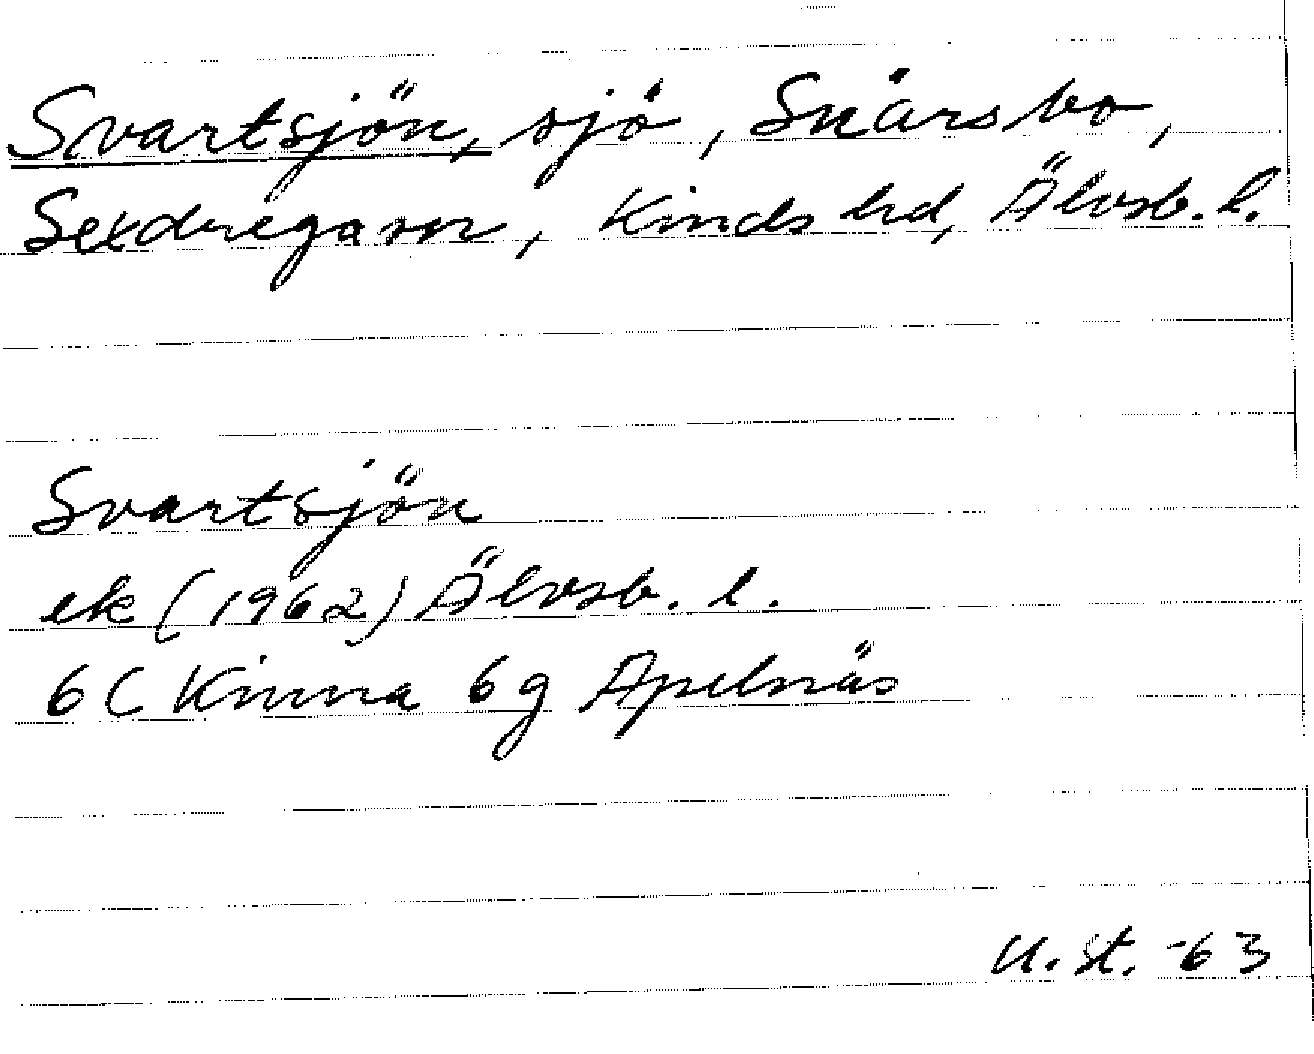 Svartsjön, sjö, Snärsbo,
Sexdregasn, Kinds hd, Älvsb. l.
Svartsjön
ek (1962) Älvsb. l.
6C Kinna 6g Apelnäs
U. St. -63